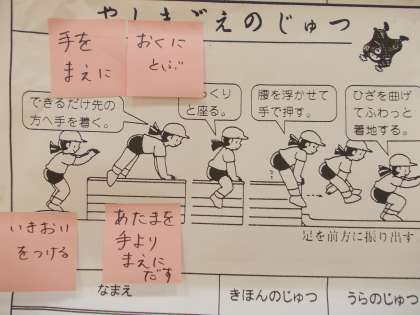 やしまごえのじゅつ
手を
まえに
おくに
とぶ
できるだけ先の
方へ手を着く。
っくり
と座る。
腰を浮かせて
手で押す。
ひざを曲げ
てふわっと
着地する。
いきおい
をつける
あたまを
手より
まえに
だす
足を前方に振り出す
なまえ
きほんのじゅつ
うらのじゅつ